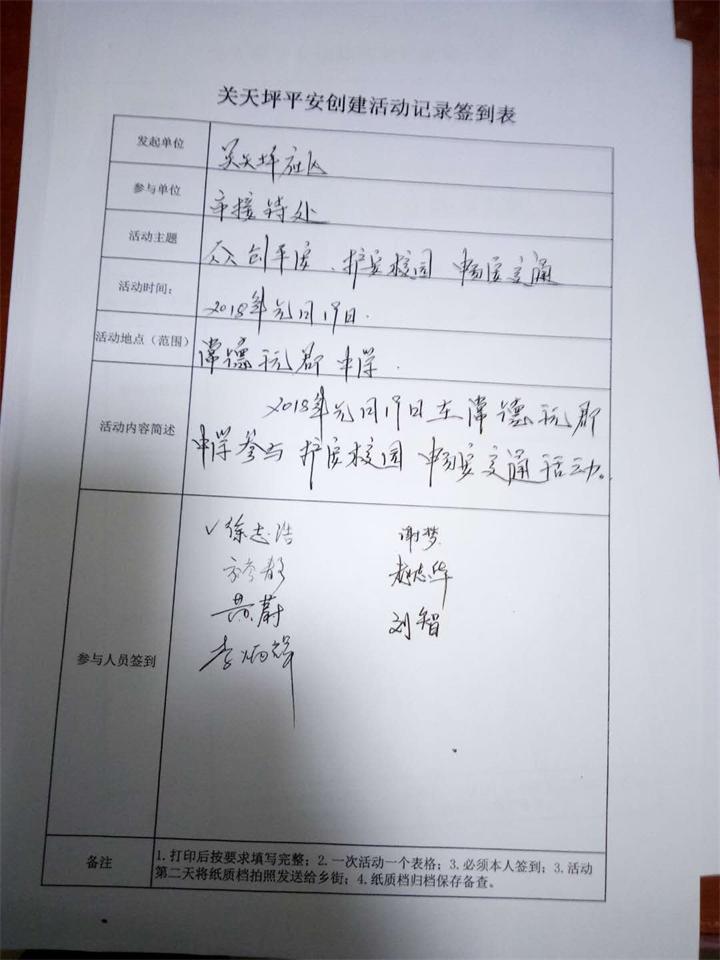 关天坪平安创建活动记录签到表
发起单位 关天坪社区
参与单位 市接待处
活动主题 众创平安、护安校园 畅安交通
活动时间: 2018年元月19日.
活动地点（范围） 常德 郡 中学.
2018年元月19日在常德 郡
活动内容简述 中学参与护安校园 畅安交通活动。
✓徐志浩 谢梦
赵志华
黄蔚 刘智
李炳辉
参与人员签到
备注 1.打印后按要求填写完整；2.一次活动一个表格；3.必须本人签到；3.活动
第二天将纸质档拍照发送给乡街；4.纸质档归档保存备查。